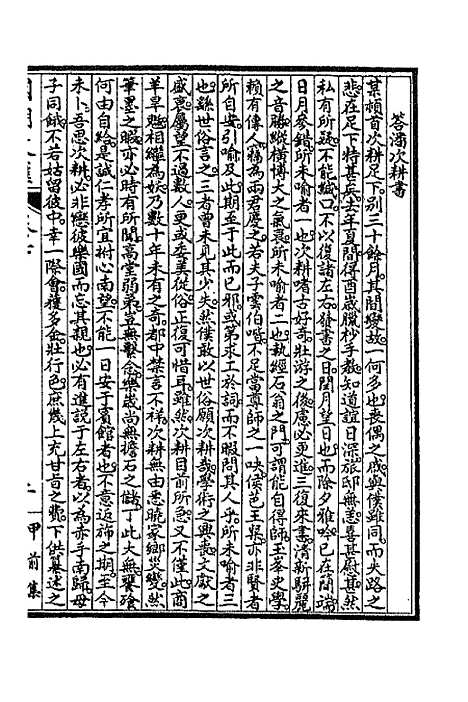 答潘次耕書
某頓首次耕足下別三十餘月其間變故一何多也喪偶之感與僕雖同而失路之
悲在足下特甚兵去年夏間得酉歲臘杪手教知道誼日深旅邸無恙喜甚慰甚然
私有所疑不能緘口不以復諸左右發書之日閏月望日也而除夕雅唫已在簡端
日月參錯所未喻者一也次耕嗜古好奇壯游之後慮必更進三復來書清新駢麗
之音勝縱橫博大之氣衰所未喻者二也執經石翁之門可謂能自得師王峯史學
賴有傳人竊為兩君慶之若夫子雲伯喈不足當尊師之一吷侯芭王粲亦非賢者
所自安引喻及此期至于此而已邪或第求工於詞而不暇問其人乎所未喻者三
也繇世俗言之三者曾未見其少失然僕敢以世俗願次耕哉學術之興喪文獻之
盛衰屬望不過數人更或委美從俗正復可惜耳雖然次耕目前所急又不僅此商
羊旱魃相繼為妖乃數十年未有之奇都中禁言不祥次耕無由悉曉家鄉災變然
筆墨之暇亦必時有所聞高堂弱弟豈無繫念樂歲尚無擔石之儲丁此大無饔飱
何由自給是誠仁孝所宜拊心南望不能一日安于賓館者也不意淹滯之期至今
未卜吾思次耕必非戀彼樂國而忘其親也必有進說于左右者以為赤手南歸母
子同餓不若姑留彼中幸一際會獲多金壯行色庶幾上充甘旨之費下供纂述之
甲前集